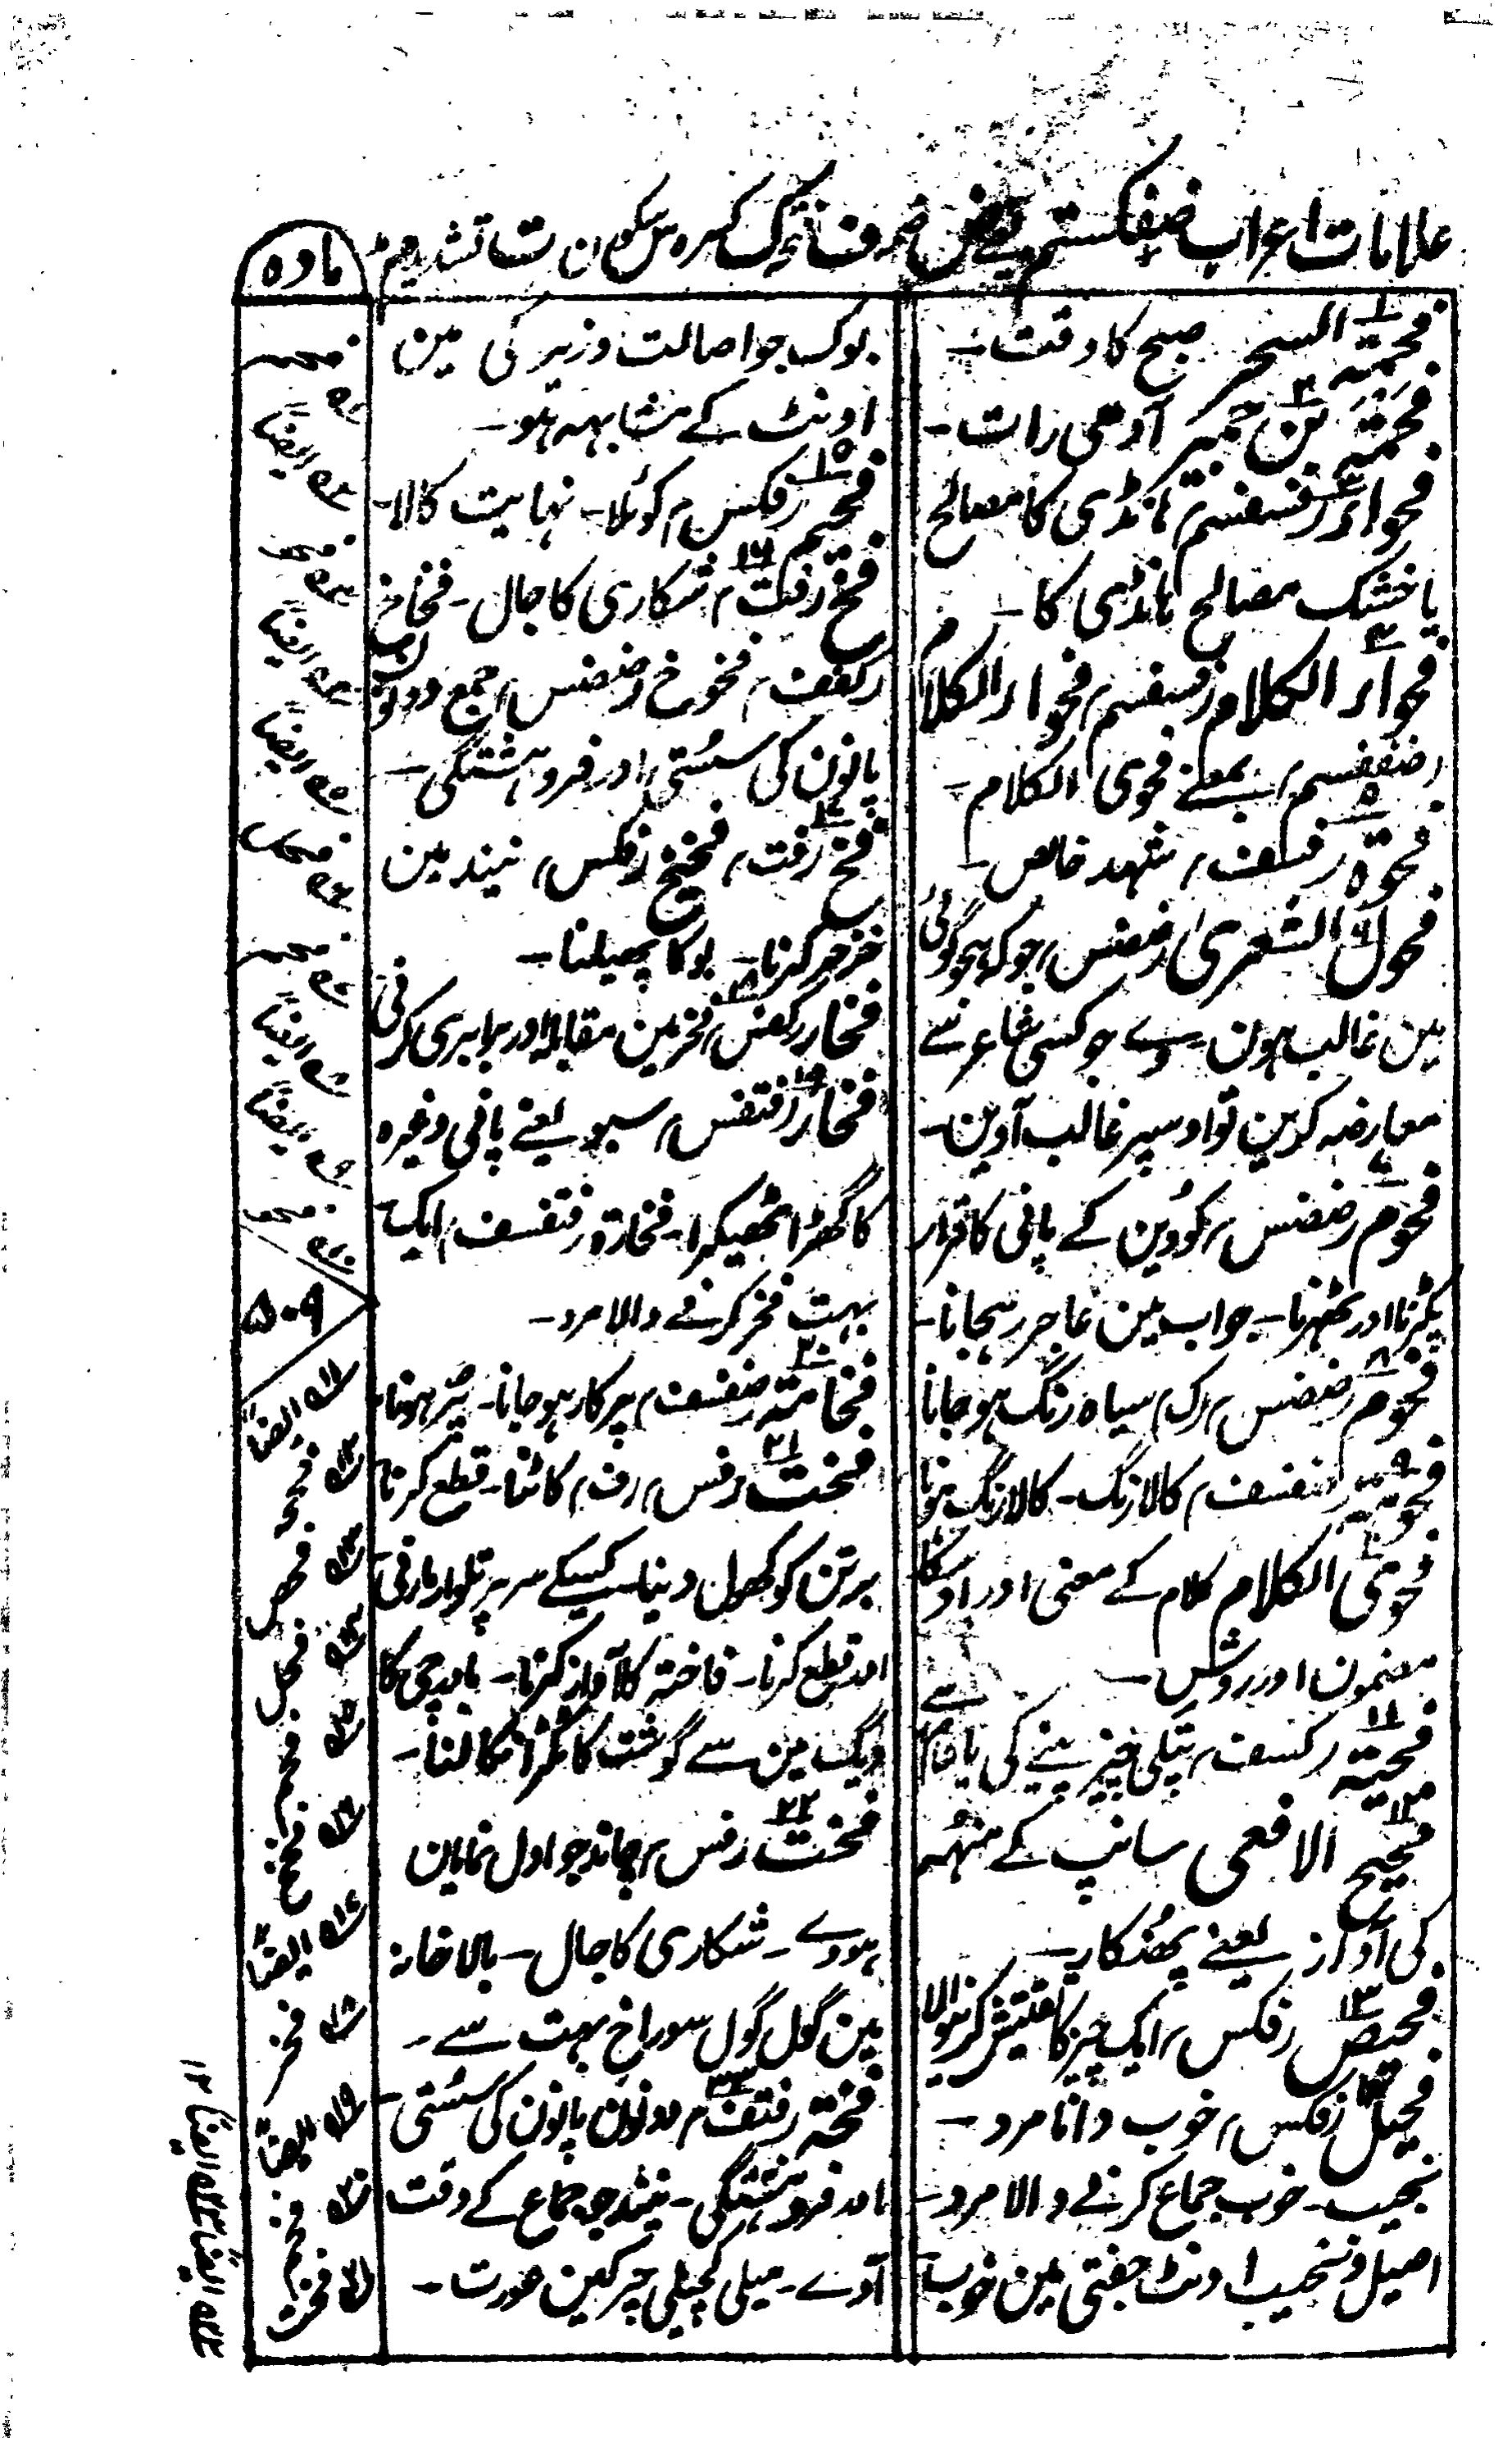 علامات اعراب ضفکستم یعنے ض ضمہ ف فتحہ ک کسرہ س سکون ت تشدید م
مادہ
فحمتہ السحر صبح کا وقت۔
فحمتہ بن جمیر آدھی رات۔
فحواء رفسفسم ہانڈی کا مصالح
یا خشک مصالح ہانڈی کا۔
فحواء الکلام رفسفسم فحواء الکلام
رضففسم بمعنے فحوی الکلام۔
فحوۃ رفسف، شہد خالص۔
فحول الشعریٰ رضضس، جو کہ ہجو گوئی
مین غالب ہون۔ وے جو کسی شاعر سے
معارضہ کرین تو اوسپر غالب آوین۔
فحوم رضضس، کوُوین کے پانی کا قرار
پکڑنا اور ٹھہرنا۔ جواب مین عاجز رہجانا۔
فحوم رضضس، رک، سیاہ رنگ ہو جانا
فحومتہ رضضسف، کالا رنگ۔ کالا رنگ ہونا
فحوی الکلام کلام کے معنی اور اوسکا
مضمون اور روش۔
فحیتہ رکسف، پتلی چیز پینے کی یا عام ہے
فحیح الافعی سانپ کے منہہ
کی آواز یعنے پھنکار۔
فحیص رفکس، ایک چیز کا تفتیش کرنیوالا
فحیل رفکس، خوب دانا مرد۔
نجیب۔ خوب جماع کرنے والا مرد۔
اصیل و نجیب اونٹ جفتی مین خوب
ہو کسب جو اصالت و زیرکی مین
اونٹ کے مشابہہ ہو۔
فحیم رفکس، کوئلا۔ نہایت کالا۔
فخ رفت، شکاری کا جال۔ فخاخ
رکفف، فخوخ رضضس، جمع دونو ان
پانون کی سستی اور فروہشتگی۔
فخ رفت، فخیخ رفکس، نیند مین
خرخر کرنا۔ بو کا پھیلنا۔
فخار رکفس، فخر مین مقابلہ اور برابری کرنی
فخار رفتفس، سبو یعنے پانی وغیرہ
کا گھڑا ٹھیکرا۔ فخارۃ رفتفسف، ایک
بہت فخر کرنے والا مرد۔
فخامتہ رضفسف، پرکار ہو جانا۔ پُر ہونا۔
فخت رفس، رف، کاٹنا۔ قطع کرنا
برتن کو کھول دینا۔ کسیکے سر پر تلوار مارنی
اور قطع کرنا۔ فاختہ کا آواز کرنا۔ باورچی کا
دیگ مین سے گوشت کا ٹکڑا نکالنا۔
فخت رفس، چاند جو اول نمایان
ہووے۔ شکاری کا جال۔ بالا خانہ
مین گول گول سوراخ بہت سے۔
فختہ رفتف، دونون پانون کی سستی۔
اور فروہشتگی۔ نیند جو جماع کے وقت
آوے۔ میلی کچیلی چرکین عورت۔
فحم
ایضاً
فحو
ایضاً
ایضاً
فحل
فحم
ایضاً
ایضاً
فحو
۵۰۹
ایضاً
فحو
فحص
فحل
فحم
فخخ
ایضاً
فخر
ایضاً
فخم
فخت
ایضاً ایضاً ۱۲